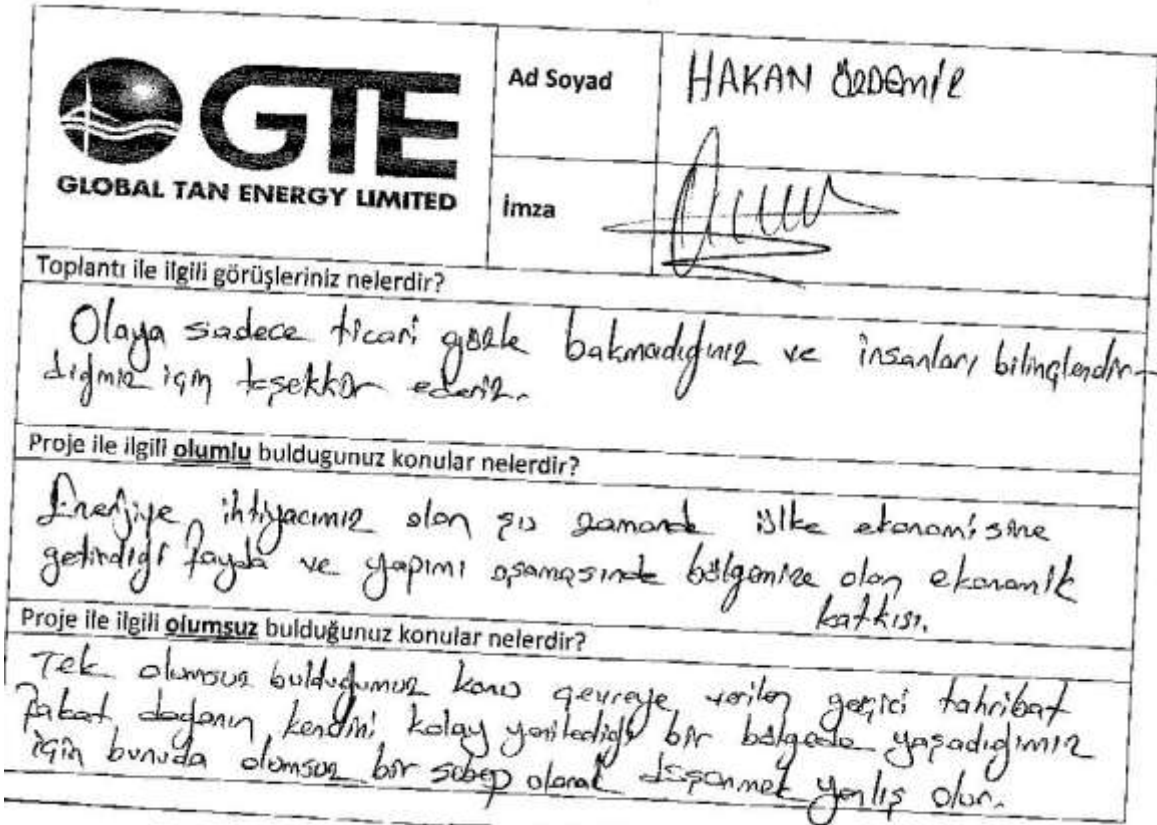 GTE
GLOBAL TAN ENERGY LIMITED
Ad Soyad
HAKAN ÖZDEMİR
İmza
Toplantı ile ilgili görüşleriniz nelerdir?
Olaya sadece ticari gözle bakmadığınız ve insanları bilinçlendir-
diğiniz için teşekkür ederiz.
Proje ile ilgili olumlu buldugunuz konular nelerdir?
Enerjiye ihtiyacımız olan şu zamanda ülke ekonomisine
getirdiği fayda ve yapımı aşamasında bölgemize olan ekonomik
katkısı.
Proje ile ilgili olumsuz bulduğunuz konular nelerdir?
Tek olumsuz bulduğumuz konu çevreye verilen geçici tahribat
fakat doğanın kendini kolay yenilediği bir bölgede yaşadığımız
için bunuda olumsuz bir sebep olarak düşünmek yanlış olur.